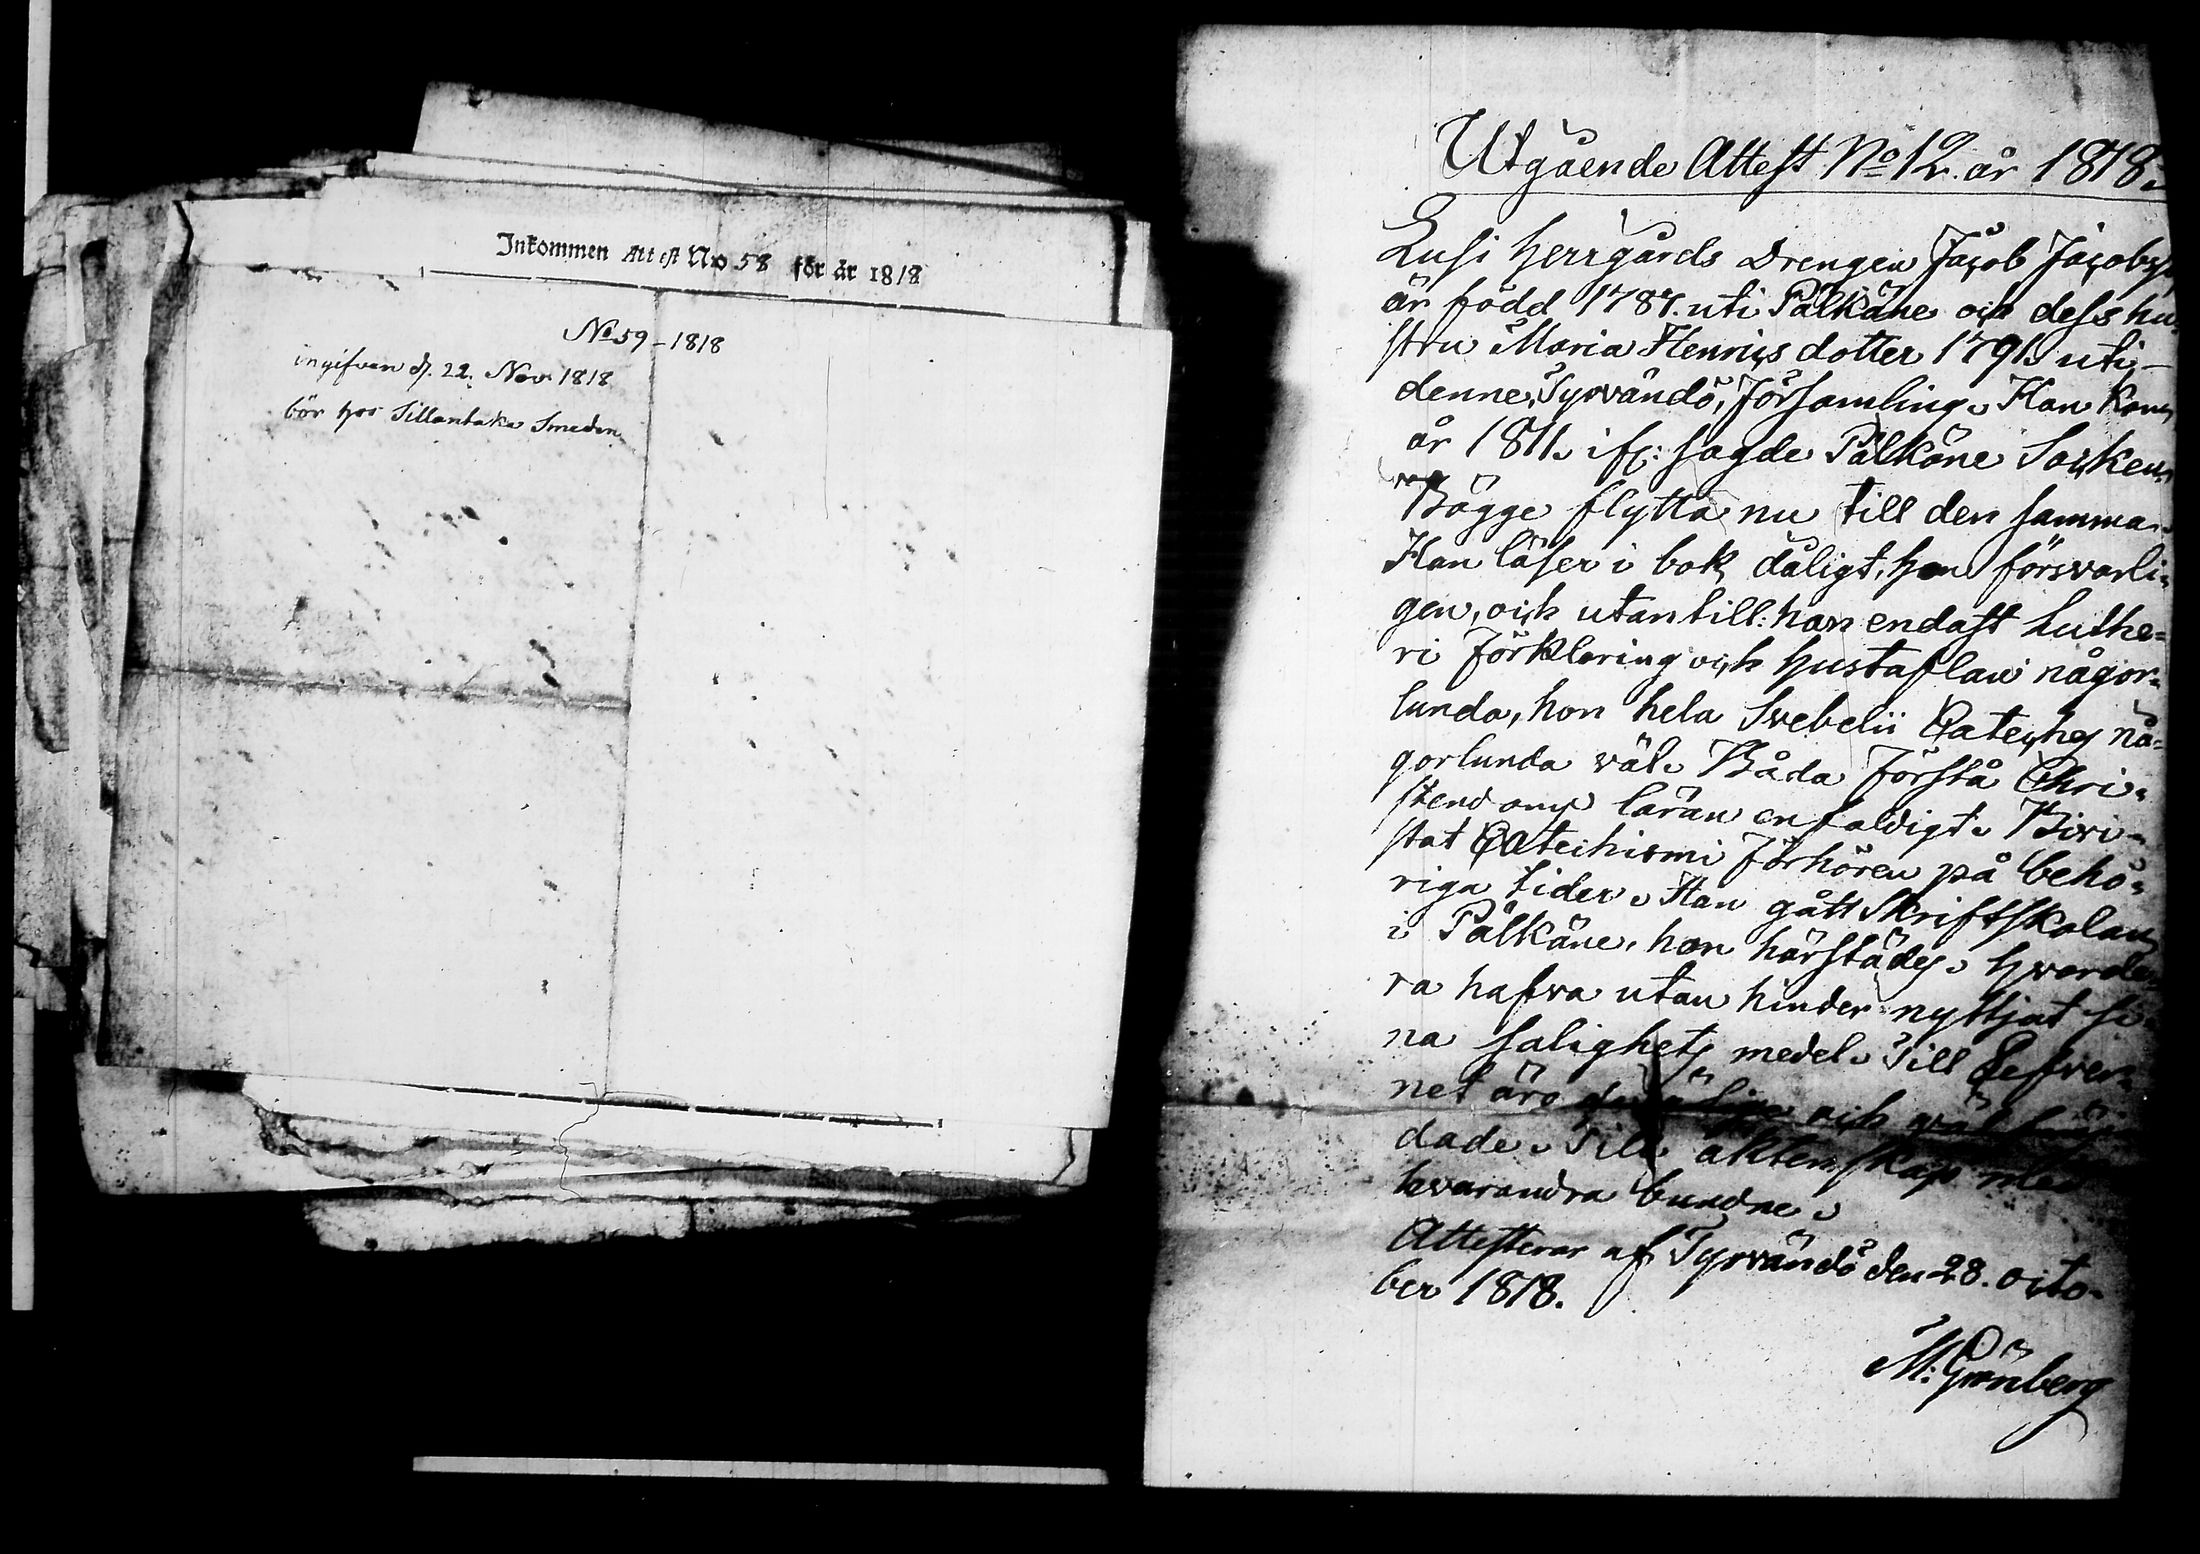 Inkommen Attest No 58 för år 1818
No 59 - 1818
ingifven d. 22. Nov. 1818
bör hos Sillantaka Smeden
Utgående Attest No 12. år 1818.
Lusi herrgårds Drengen Jacob Jacobs
är född 1787. uti Pälkäne och dess hu-
stru Maria Henrics dotter 1791. uti
denne, Tyrvändö, Församling. Han kom
år 1811. ifr: sagde Pälkäne Socken.
Bägge flytta nu till den samma.
Han läser i bok dåligt, hon försvarli-
gen, och utantill: han endast Luthe-
ri Förklaring och Hustaflan någor-
lunda, hon hela Svebelii Catech: nå-
gorlunda väl. Båda förstå Chri-
stendoms läran enfaldigt. Bivi-
stat Catechismi Förhören på behö-
riga tider. Han gått Skriftskolan
i Pälkäne, hon härstädes. Hvarde-
ra hafva utan hinder nyttjat si-
na salighets medel. Till Lefver-
net äro och väl
dade. Till äktenskap med
hvarandra bundne.
Attesterar af Tyrvändö den 28. Octo-
ber 1818.
M: Grönberg